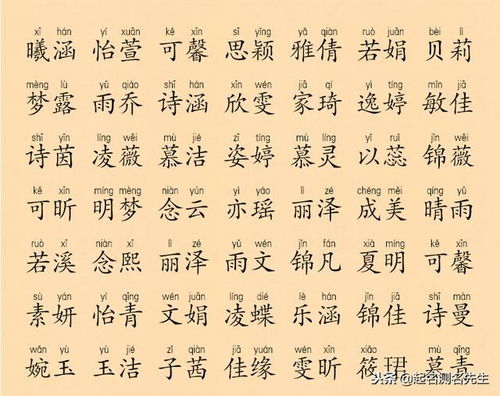 xī hán yí xuān kě xīn sī yǐng yǎ qiàn ruò juān bèi lì
曦涵 怡萱 可馨 思颖 雅倩 若娟 贝莉
mèng lù yǔ qiáo shī hán xīn wén jiā qí yì tíng mǐn jiā
梦露 雨乔 诗涵 欣雯 家琦 逸婷 敏佳
shī yīn líng wēi mù jié zī tíng mù líng yǐ ruǐ jǐn wēi
诗茵 凌薇 慕洁 姿婷 慕灵 以蕊 锦薇
kě xīn míng mèng niàn yún yì yáo lì zé chéng měi qíng yǔ
可昕 明梦 念云 亦瑶 丽泽 成美 晴雨
ruò xī niàn xī lì zé yǔ wén jǐn fán xià míng kě xīn
若溪 念熙 丽泽 雨文 锦凡 夏明 可馨
sù yán yí qīng wén juān líng dié lè hán jǐn jiā shī màn
素妍 怡青 文娟 凌蝶 乐涵 锦佳 诗曼
wǎn yù yù jié zǐ qiàn jiā yuán wén xīn xiǎo mù qīng
婉玉 玉洁 子茜 佳缘 雯昕 筱珺 慕青
头条@起名测名先生